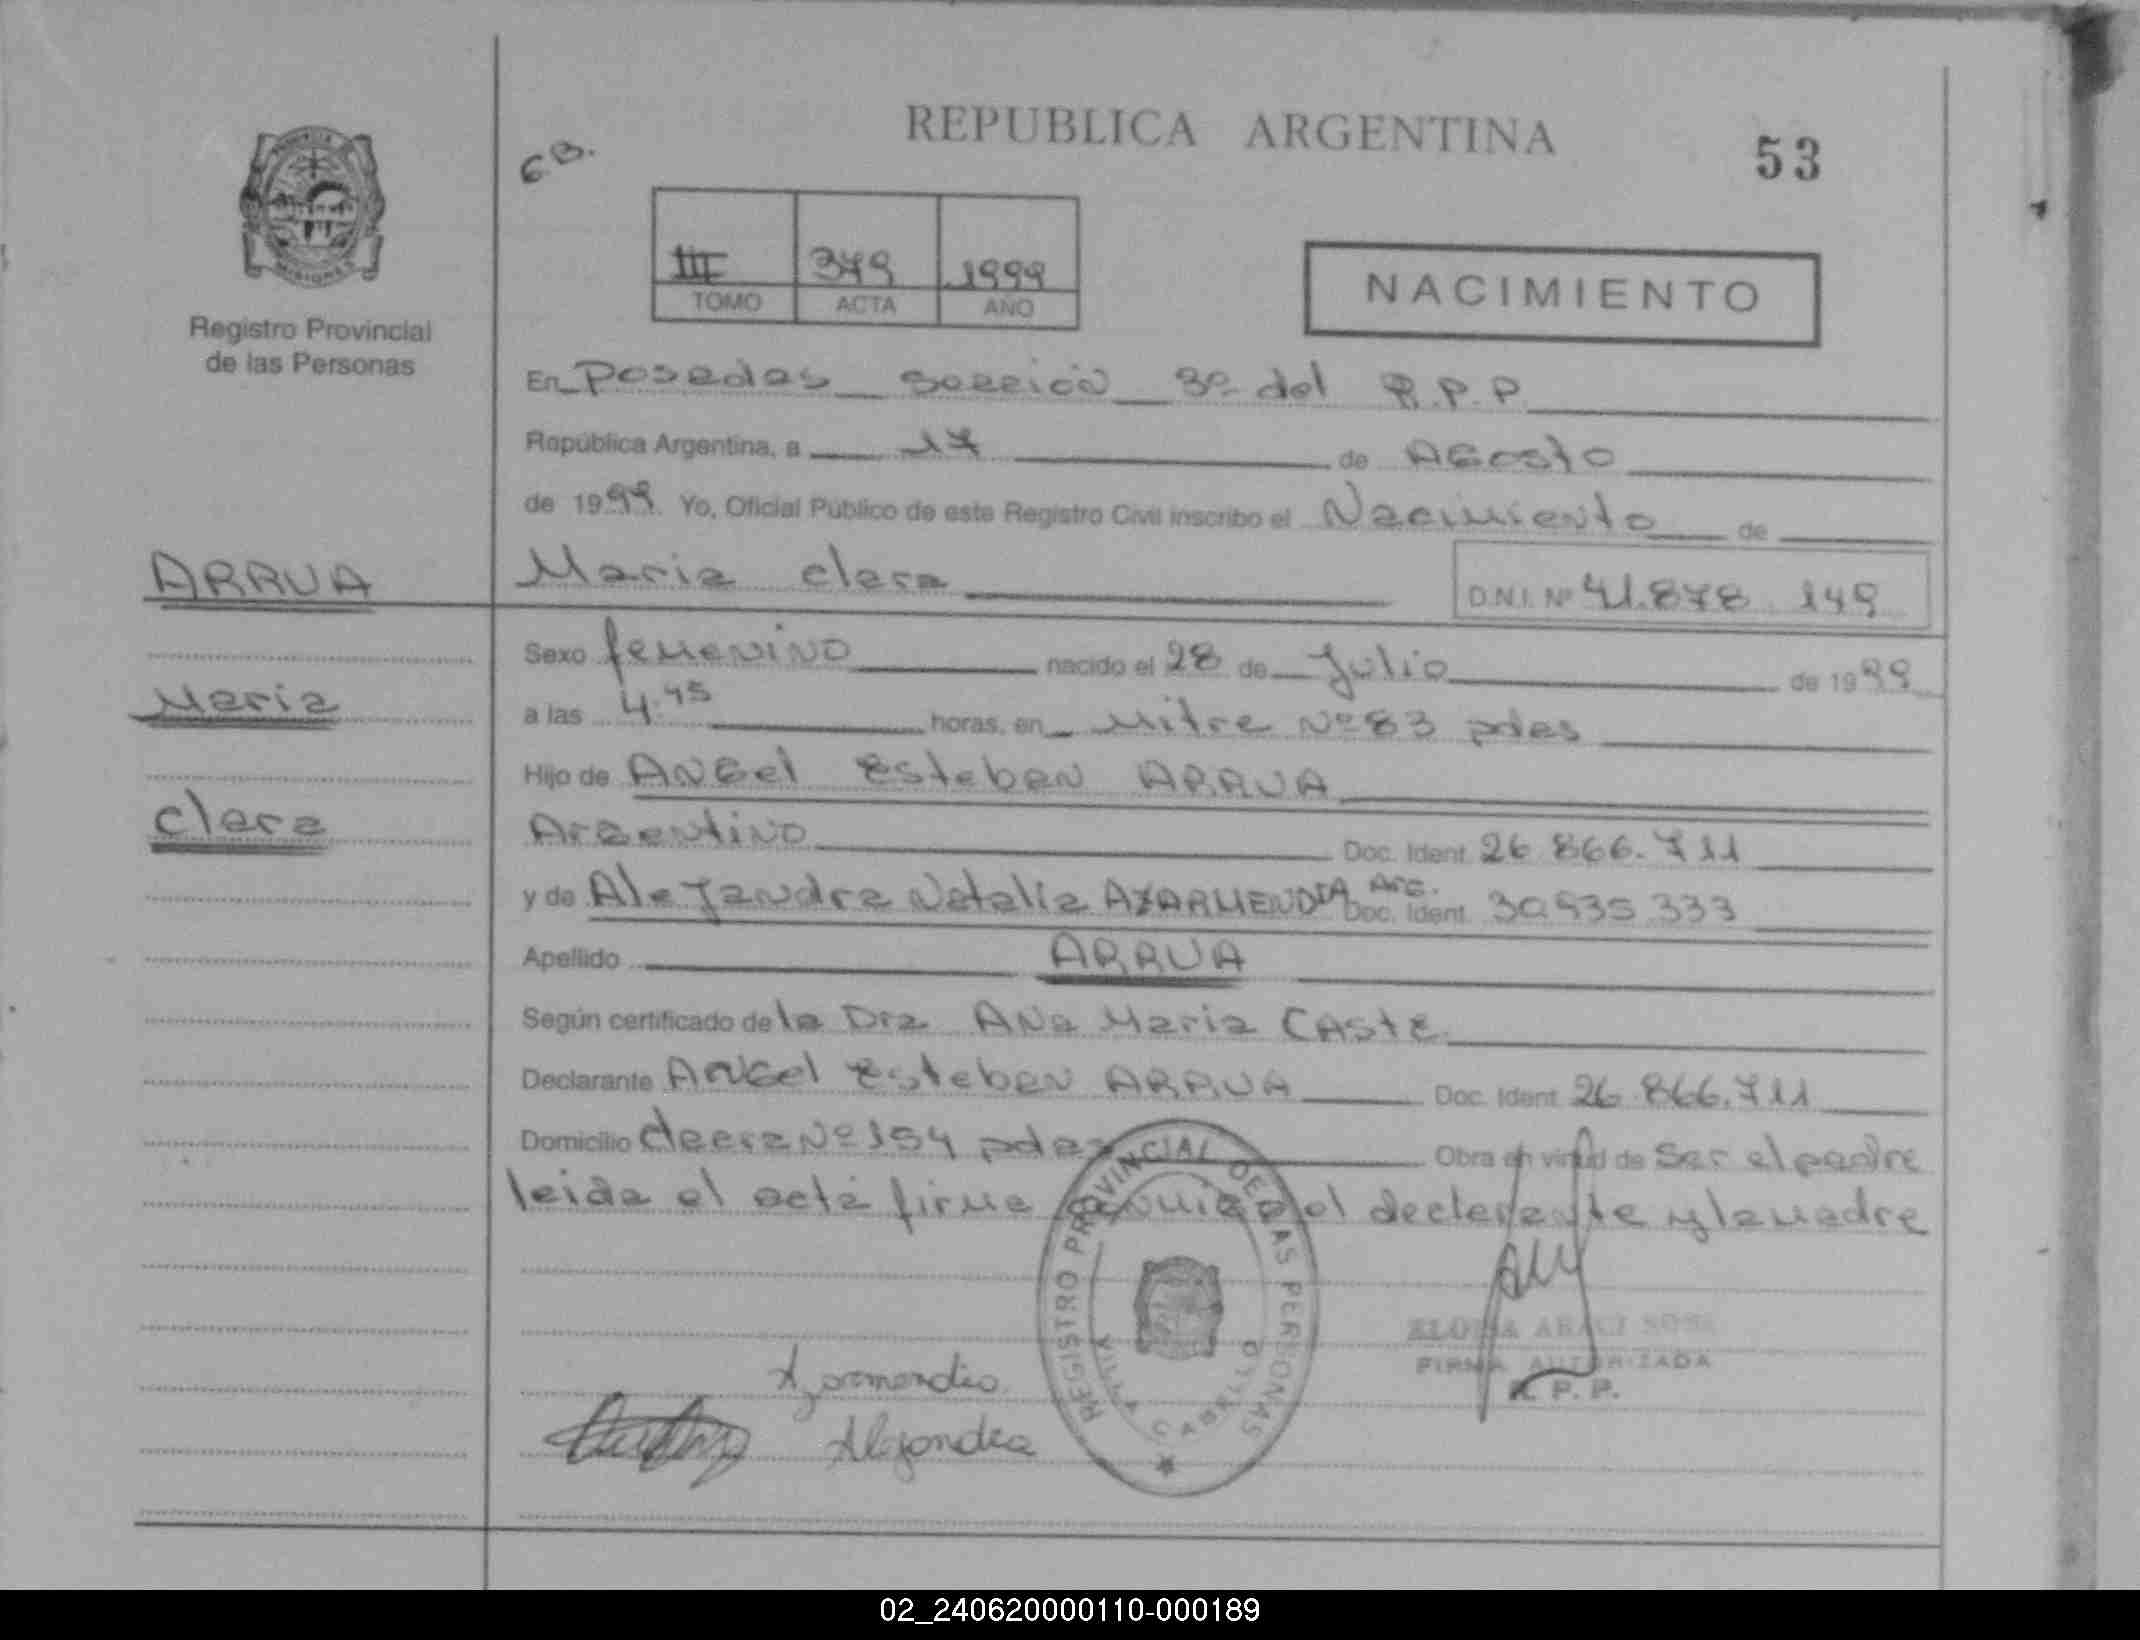 REPUBLICA ARGENTINA
53
G.B.
III 379 1999
TOMO ACTA AÑO
NACIMIENTO
MISIONES
Registro Provincial
de las Personas
En Posadas Sección 3º del R.P.P.
República Argentina, a 17 de Agosto
de 1999. Yo, Oficial Público de este Registro Civil inscribo el Nacimiento de
ARRUA
Maria Clara D.N.I. Nº 41.878.149
Sexo femenino nacido el 28 de Julio de 1999
Maria
a las 4.45 horas, en Mitre Nº 83 pdas
Hijo de Angel Esteban ARRUA
Clara
Argentino Doc. Ident. 26.866.711
y de Alejandra Natalia AZARMENDIA Arg. Doc. Ident. 30.935.333
Apellido ARRUA
Según certificado de la Dra Ana Maria Caste
Declarante Angel Esteban ARRUA Doc. Ident. 26.866.711
Domicilio Nº 154 pdas Obra en virtud de Ser el padre
leida el acta firma el declarante y la madre
REGISTRO PROVINCIAL DE LAS PERSONAS
VILLA CABELLO
ARACI SOSA
FIRMA AUTORIZADA
R.P.P.
Azarmendia
Alejandra
02_240620000110-000189